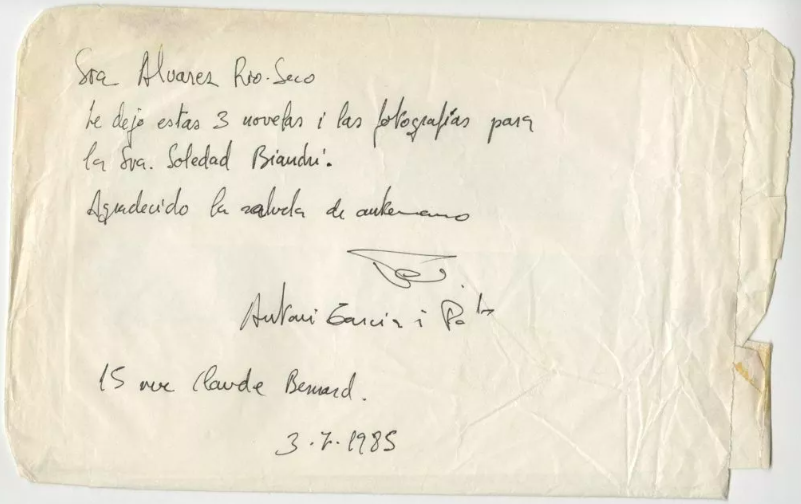 Sra Alvarez Rio-Seco
te dejo estas 3 novelas i las fotografías para
la Sra. Soledad Bianchi.
Agradecido la saluda de antemano
Antoni Garcia i
15 rue Claude Bernard.
3.7.1985